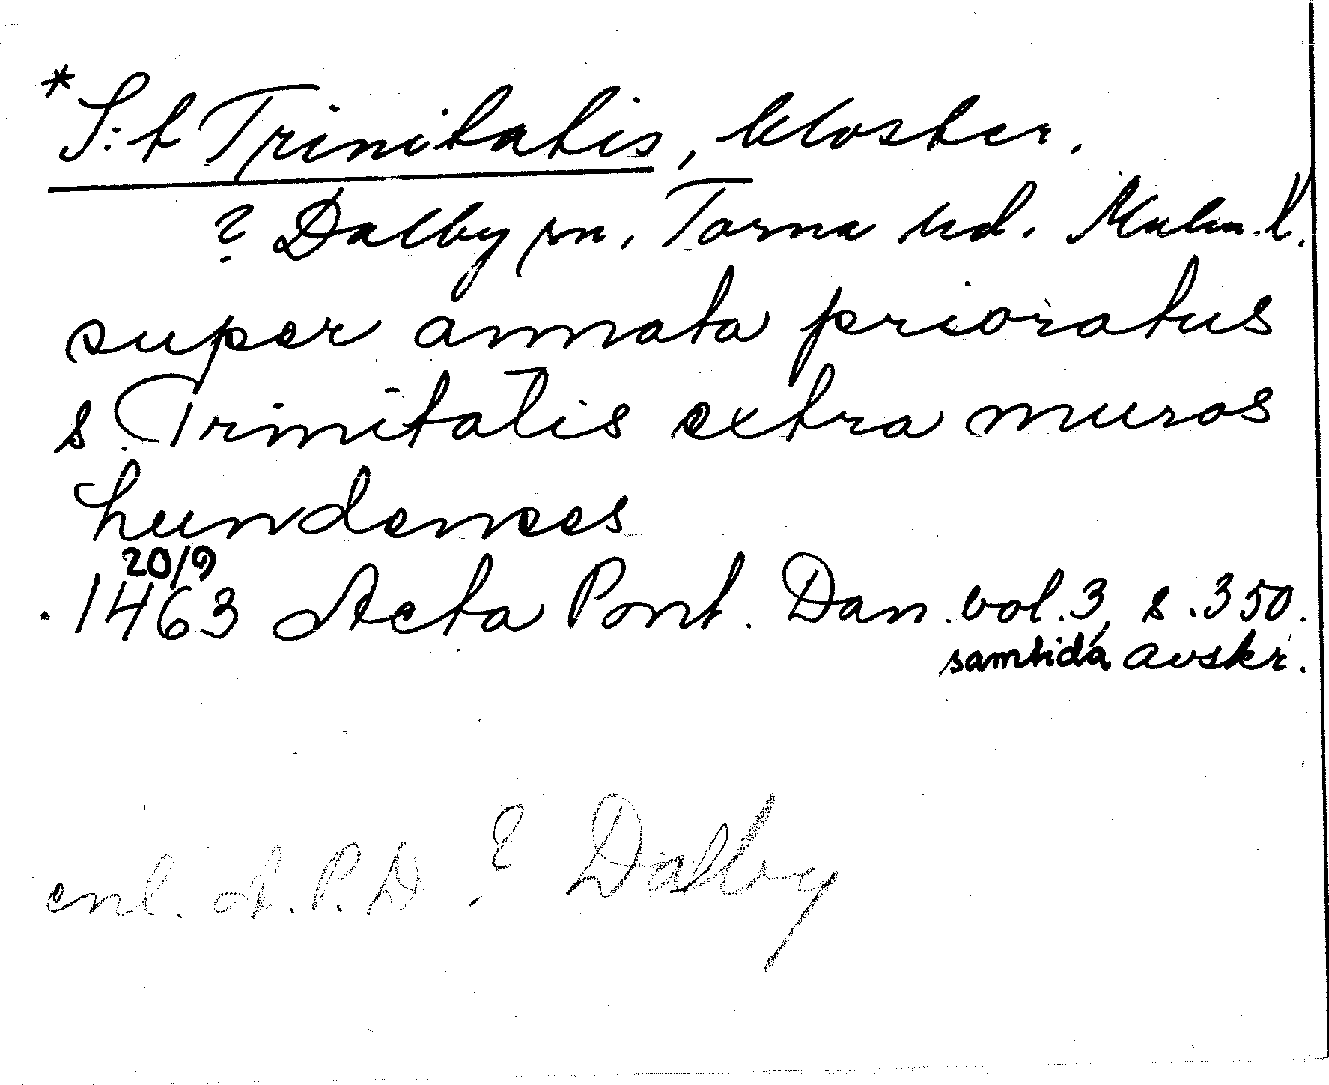 *S:t Trinitatis, kloster.
? Dalby sn, Torna hd. Malm. l.
super annata prioratus
s. Trinitatis extra muros
Lundences
20/9
1463 Acta Pont. Dan. vol. 3, s. 350.
samtida avskr.
enl. A.P.D ? Dalby